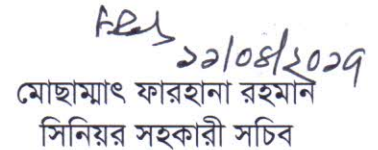 ১১/০৪/২০১৭
মোছাম্মাৎ ফারহানা রহমান
সিনিয়র সহকারী সচিব